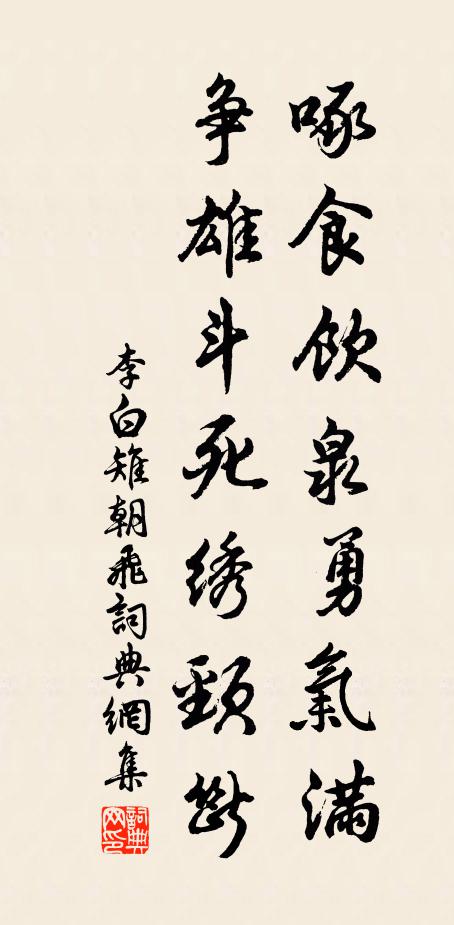 啄食飲泉勇氣滿
争雄斗死绣頸斷
李白雉朝飛詞典網集
詞典網印